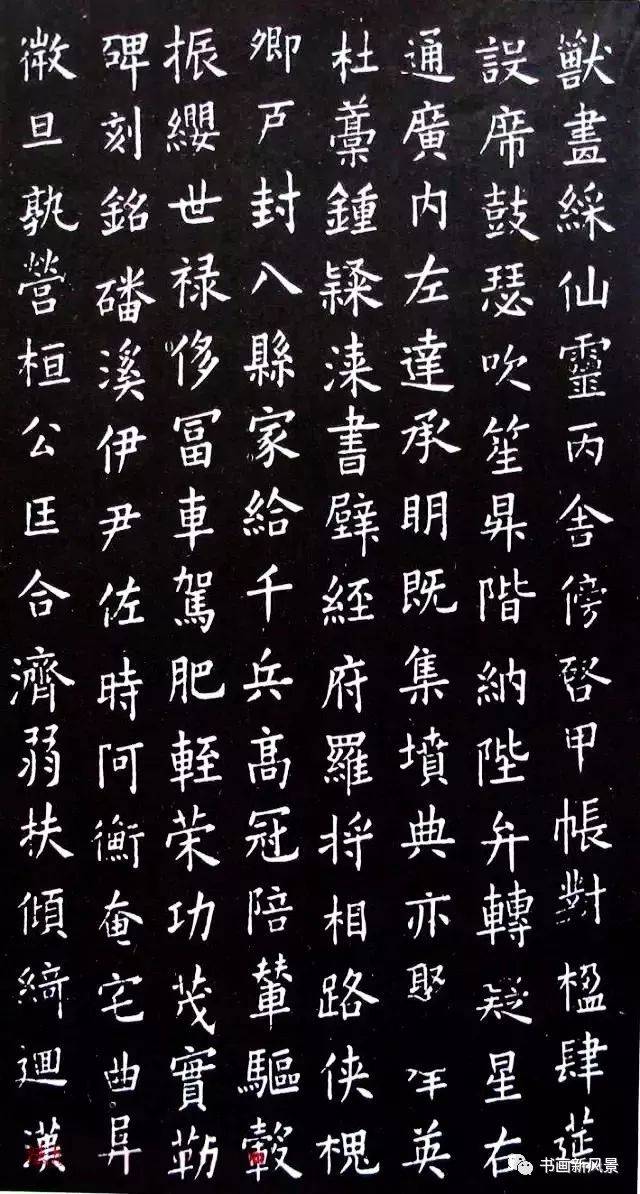 獸畫綵仙靈丙舍傍啓甲帳對楹肆筵
設席鼓瑟吹笙昇階納陛弁轉疑星右
通廣内左達承明既集墳典亦聚英
杜藁鍾隸漆書壁經府羅将相路俠槐
卿戶封八縣家給千兵高冠陪輦驅轂
振纓世禄侈冨車駕肥輕策功茂實勒
碑刻銘磻溪伊尹佐時阿衡奄宅曲阜
微旦孰營桓公匡合濟弱扶傾綺廻漢
书画新风景